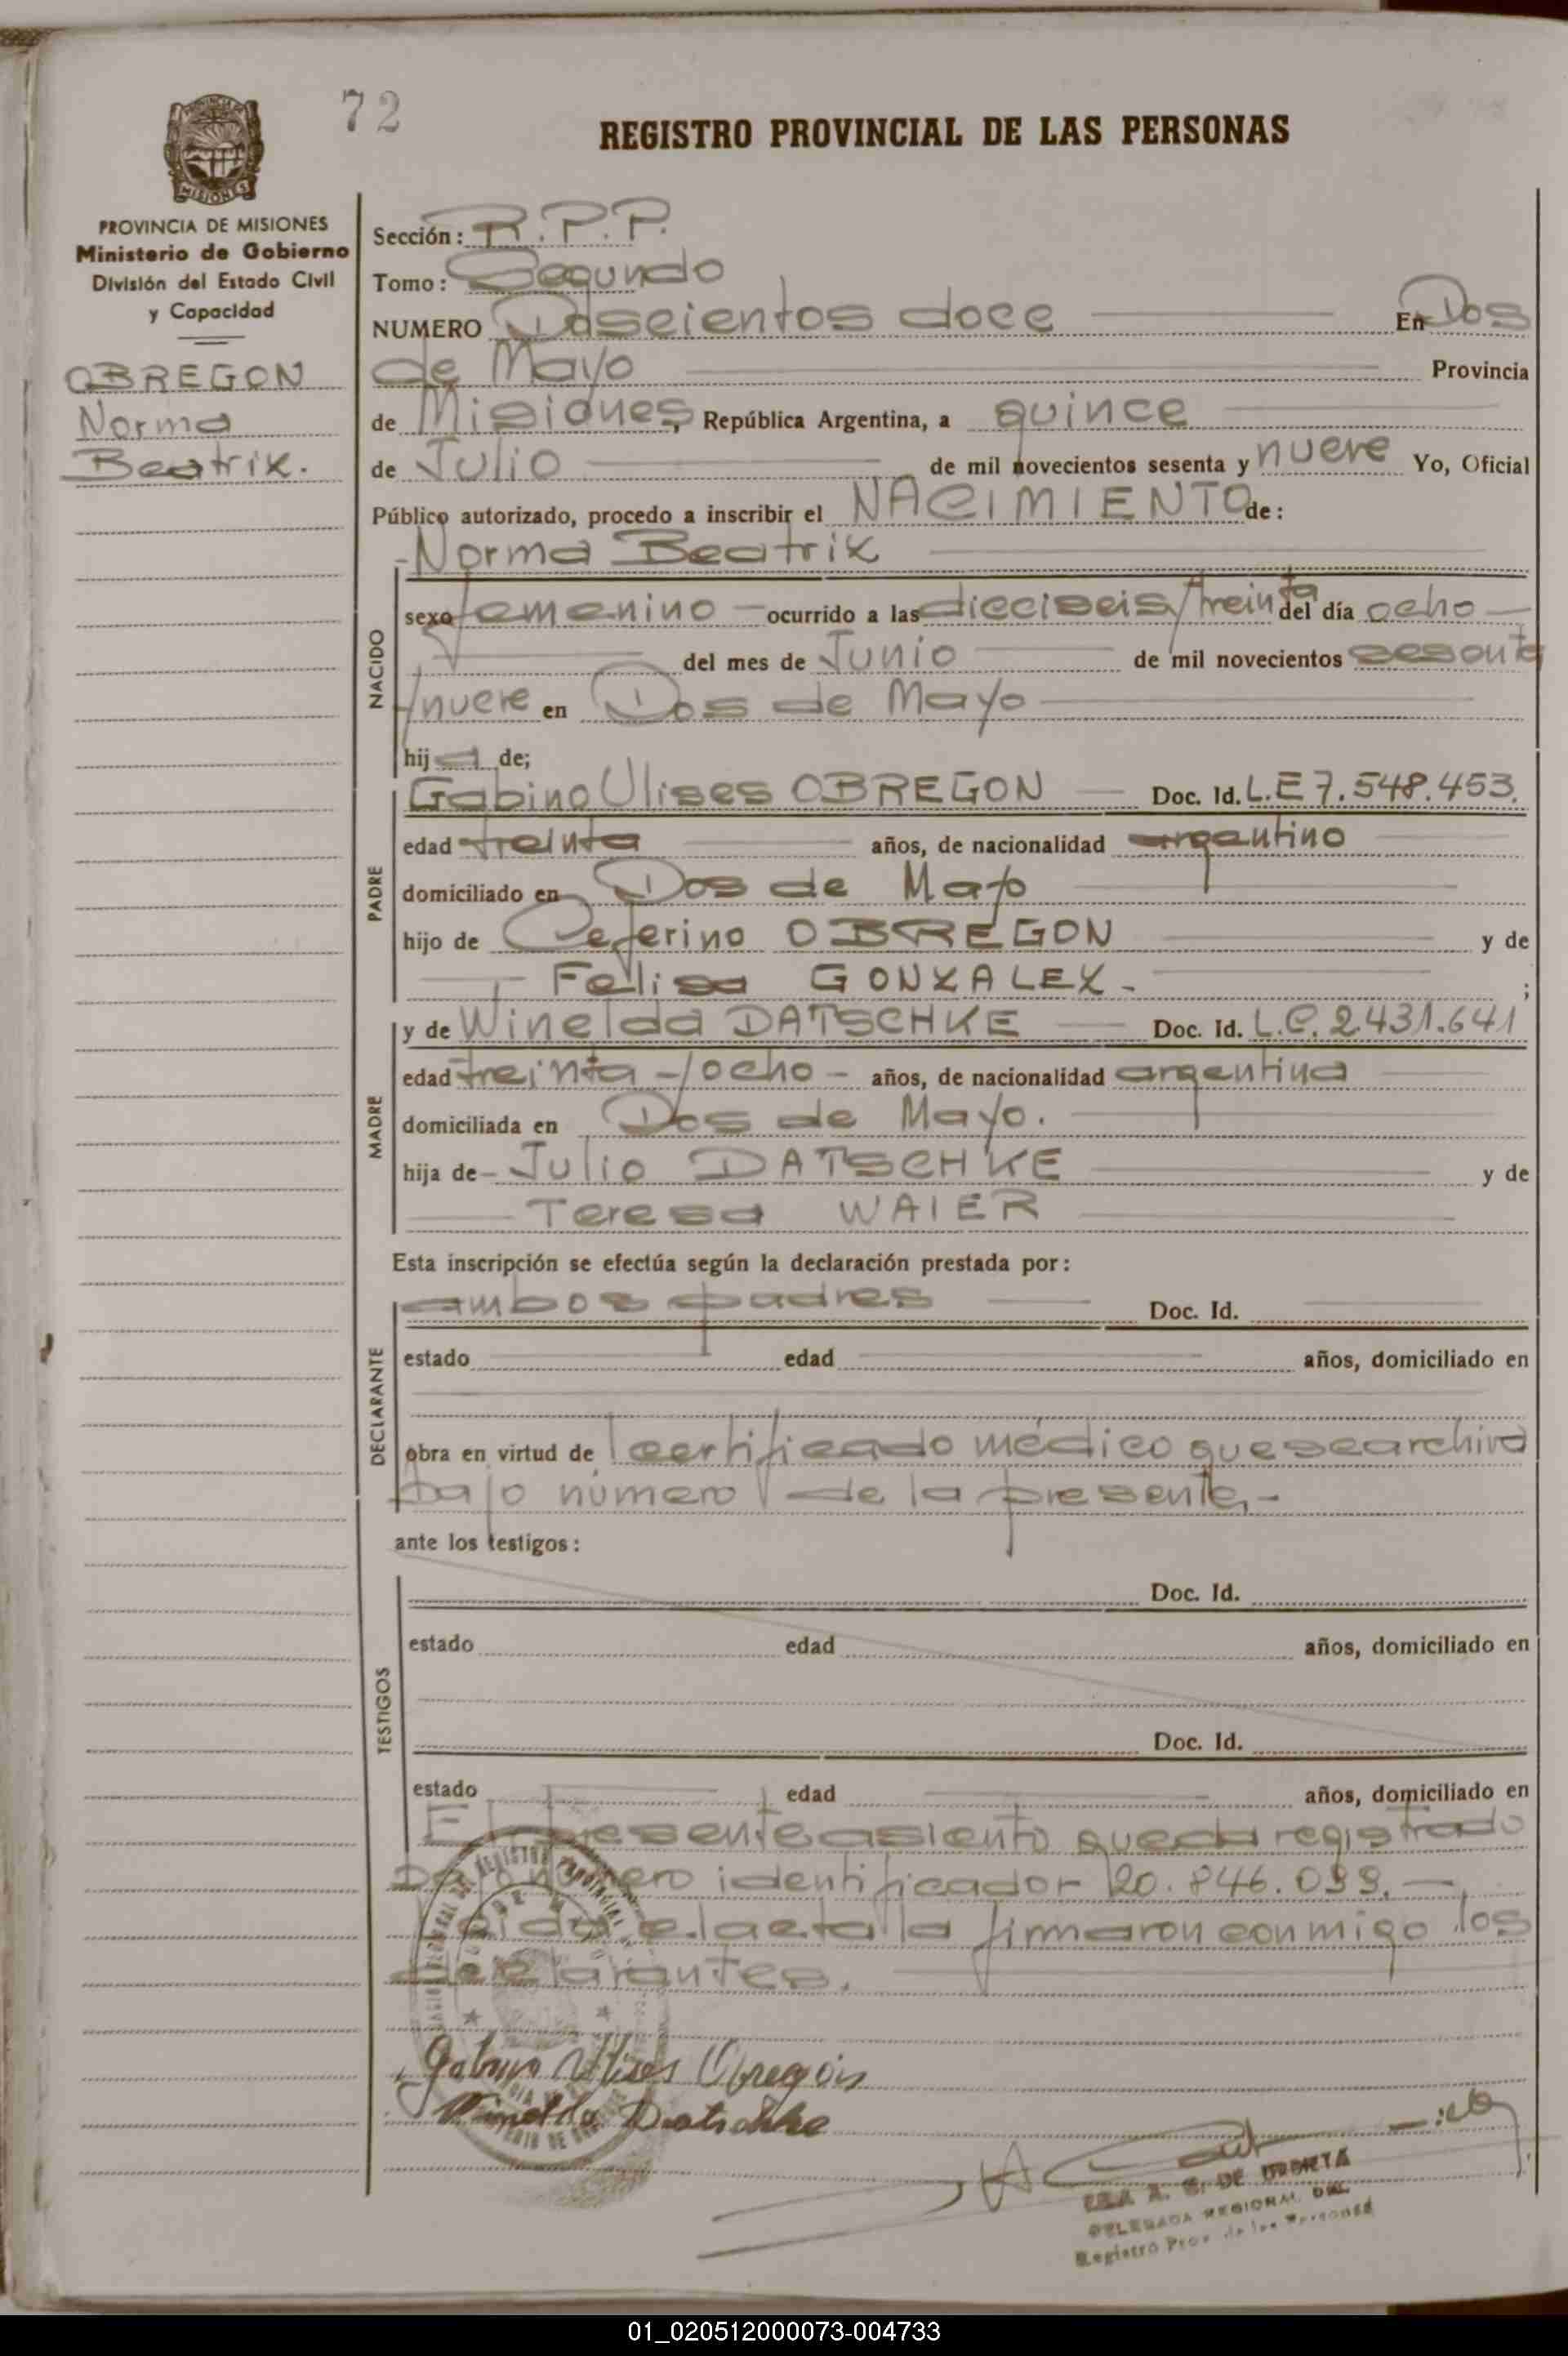 72
REGISTRO PROVINCIAL DE LAS PERSONAS
MISIONES
PROVINCIA DE MISIONES
Ministerio de Gobierno
División del Estado Civil
y Capacidad
OBREGON
Norma
Beatrix.
Sección: R.P.P.
Tomo: Segundo
NUMERO Doscientos doce En Dos
de Mayo Provincia
de Misiones, República Argentina, a quince
de Julio de mil novecientos sesenta y nueve Yo, Oficial
Público autorizado, procedo a inscribir el NACIMIENTO de:
Norma Beatrix
NACIDO
sexo femenino ocurrido a las dieciseis/treinta del día ocho
del mes de Junio de mil novecientos sesenta
/nueve en Dos de Mayo
hija de;
PADRE
Gabino Ulises OBREGON Doc. Id. L.E 7.548.453.
edad treinta años, de nacionalidad argentino
domiciliado en Dos de Mayo
hijo de Ceferino OBREGON y de
Felisa GONZALEZ. ;
MADRE
y de Winelda DATSCHKE Doc. Id. L.C. 2431.641
edad treinta-/ocho- años, de nacionalidad argentina
domiciliada en Dos de Mayo.
hija de Julio DATSCHKE y de
Teresa WAIER
Esta inscripción se efectúa según la declaración prestada por:
DECLARANTE
ambos padres Doc. Id.
estado edad años, domiciliado en
obra en virtud de certificado médico que se archiva
bajo número de la presente.-
ante los testigos:
TESTIGOS
Doc. Id.
estado edad años, domiciliado en
Doc. Id.
estado edad años, domiciliado en
El presente asiento queda registrado
bajo número identificador 20.846.099.
Leida el acta la firmaron conmigo los
declarantes.
Gabino Ulises Obregón
Winelda Datschke
SRA A. DE URDIETA
DELEGADA REGIONAL DEL
Registro Prov. de las Personas
01_020512000073-004733